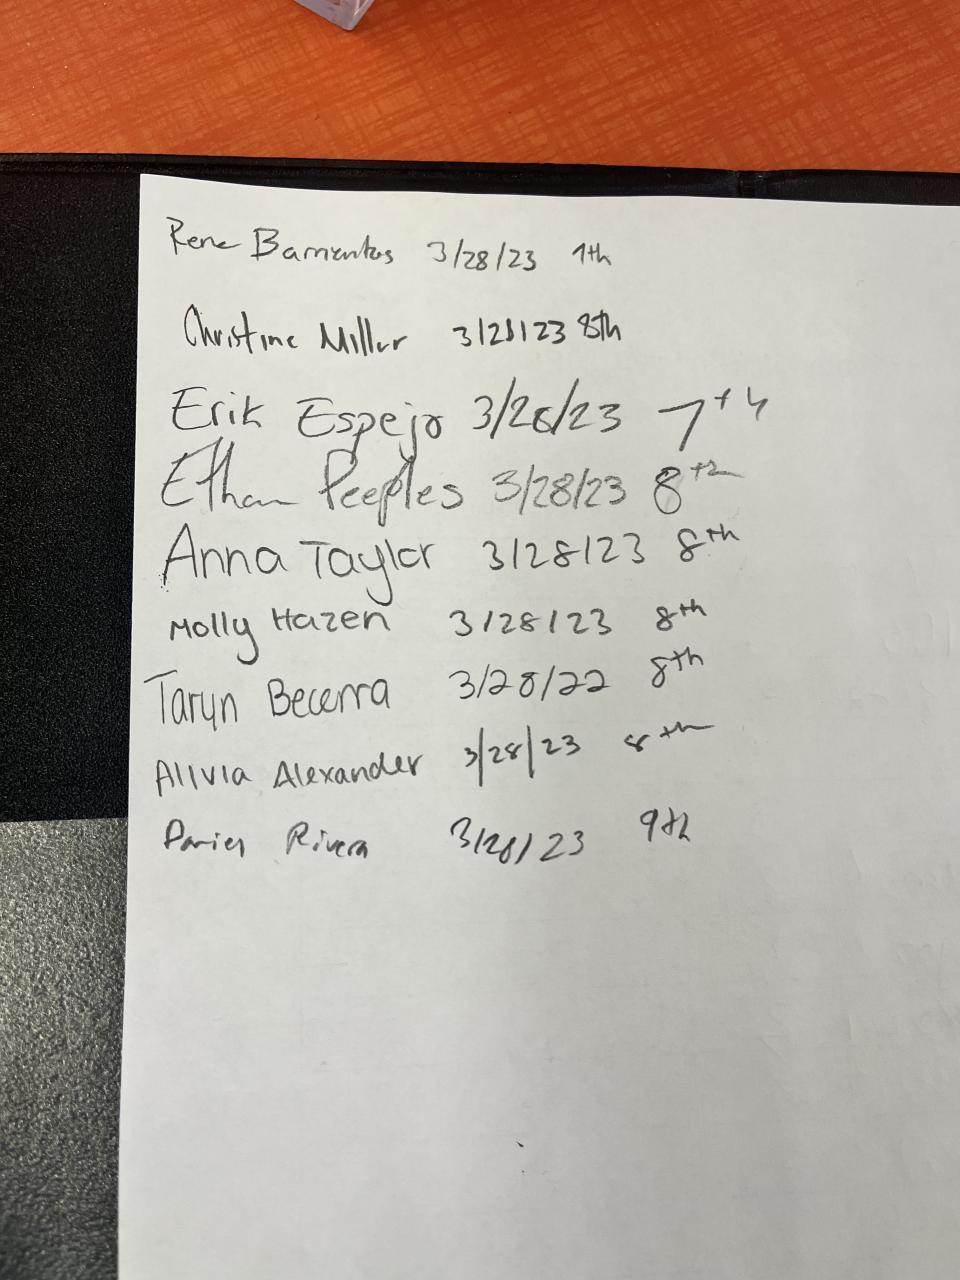 Rene Barrientos 3/28/23 7th
Christine Miller 3/28/23 8th
Erik Espejo 3/28/23 7th
Ethan Peeples 3/28/23 8th
Anna Taylor 3/28/23 8th
Molly Hazen 3/28/23 8th
Taryn Becerra 3/28/22 8th
Alivia Alexander 3/28/23 8th
Rivera 3/28/23 9th